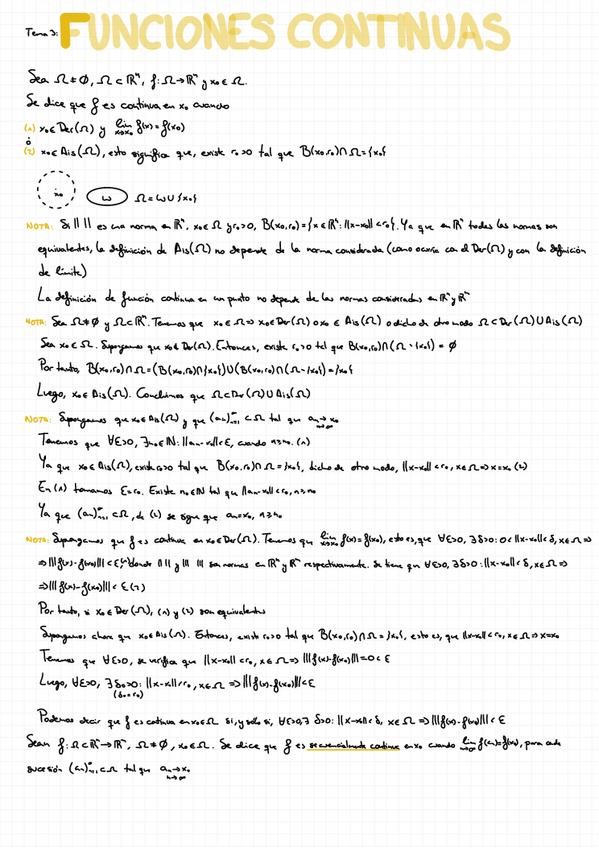 Tema 3: FUNCIONES CONTINUAS
Sea Ω ≠ ∅, Ω ⊂ ℝⁿ, f: Ω → ℝᵏ y x₀ ∈ Ω.
Se dice que f es continua en x₀ cuando
(1) x₀ ∈ Der(Ω) y lim x→x₀ f(x) = f(x₀)
ó
(2) x₀ ∈ Ais(Ω), esto significa que, existe r₀>0 tal que B(x₀,r₀)∩Ω = {x₀}
x₀ ω Ω = ω ∪ {x₀}
NOTA: Si || || es una norma en ℝⁿ, x₀ ∈ Ω y r₀>0, B(x₀,r₀) = {x ∈ ℝⁿ: ||x-x₀|| < r₀}. Ya que en ℝⁿ todas las normas son
equivalentes, la definición de Ais(Ω) no depende de la norma considerada (como ocurría con el Der(Ω) y con la definición
de límite)
La definición de función continua en un punto no depende de las normas consideradas en ℝⁿ y ℝᵏ
NOTA: Sea Ω ≠ ∅ y Ω ⊂ ℝⁿ. Tenemos que x₀ ∈ Ω => x₀ ∈ Der(Ω) o x₀ ∈ Ais(Ω) o dicho de otro modo Ω ⊂ Der(Ω) ∪ Ais(Ω)
Sea x₀ ∈ Ω. Supongamos que x₀ ∉ Der(Ω). Entonces, existe r₀>0 tal que B(x₀,r₀)∩(Ω \ {x₀}) = ∅
Por tanto, B(x₀,r₀)∩Ω = (B(x₀,r₀)∩{x₀}) ∪ (B(x₀,r₀)∩(Ω \ {x₀})) = {x₀}
Luego, x₀ ∈ Ais(Ω). Concluimos que Ω ⊂ Der(Ω) ∪ Ais(Ω)
NOTA: Supongamos que x₀ ∈ Ais(Ω) y que (aₙ)ₙ₌₁^∞ ⊂ Ω tal que aₙ → x₀ n→∞
Tenemos que ∀ε>0, ∃n₀∈ℕ: ||aₙ-x₀|| < ε, cuando n≥n₀. (1)
Ya que x₀ ∈ Ais(Ω), existe r₀>0 tal que B(x₀,r₀)∩Ω = {x₀}, dicho de otro modo, ||x-x₀|| < r₀, x∈Ω => x=x₀ (2)
En (1) tomamos ε=r₀. Existe n₀∈ℕ tal que ||aₙ-x₀|| < r₀, n≥n₀
Ya que (aₙ)ₙ₌₁^∞ ⊂ Ω, de (2) se sigue que aₙ=x₀, n≥n₀
NOTA: Supongamos que f es continua en x₀ ∈ Der(Ω). Tenemos que lim x→x₀ f(x) = f(x₀), esto es, que ∀ε>0, ∃δ>0: 0<||x-x₀||<δ, x∈Ω =>
=> |||f(x)-f(x₀)||| < ε, donde || || y ||| ||| son normas en ℝⁿ y ℝᵏ respectivamente. Se tiene que ∀ε>0, ∃δ>0: ||x-x₀||<δ, x∈Ω =>
=> |||f(x)-f(x₀)||| < ε (2)
Por tanto, si x₀ ∈ Der(Ω), (1) y (2) son equivalentes
Supongamos ahora que x₀ ∈ Ais(Ω). Entonces, existe r₀>0 tal que B(x₀,r₀)∩Ω = {x₀}, esto es, que ||x-x₀||<r₀, x∈Ω => x=x₀
Tenemos que ∀ε>0, se verifica que ||x-x₀||<r₀, x∈Ω => |||f(x)-f(x₀)||| = 0 < ε
Luego, ∀ε>0, ∃δ₀>0: ||x-x₀||<r₀, x∈Ω => |||f(x)-f(x₀)||| < ε
(δ₀=r₀)
Podemos decir que f es continua en x₀∈Ω si, y sólo si, ∀ε>0, ∃δ>0: ||x-x₀||<δ, x∈Ω => |||f(x)-f(x₀)||| < ε
Sean f: Ω⊂ℝⁿ → ℝᵏ, Ω≠∅, x₀∈Ω. Se dice que f es secuencialmente continua en x₀ cuando lim n→∞ f(aₙ)=f(x₀), para cada
sucesión (aₙ)ₙ₌₁^∞ ⊂ Ω tal que aₙ → x₀ n→∞